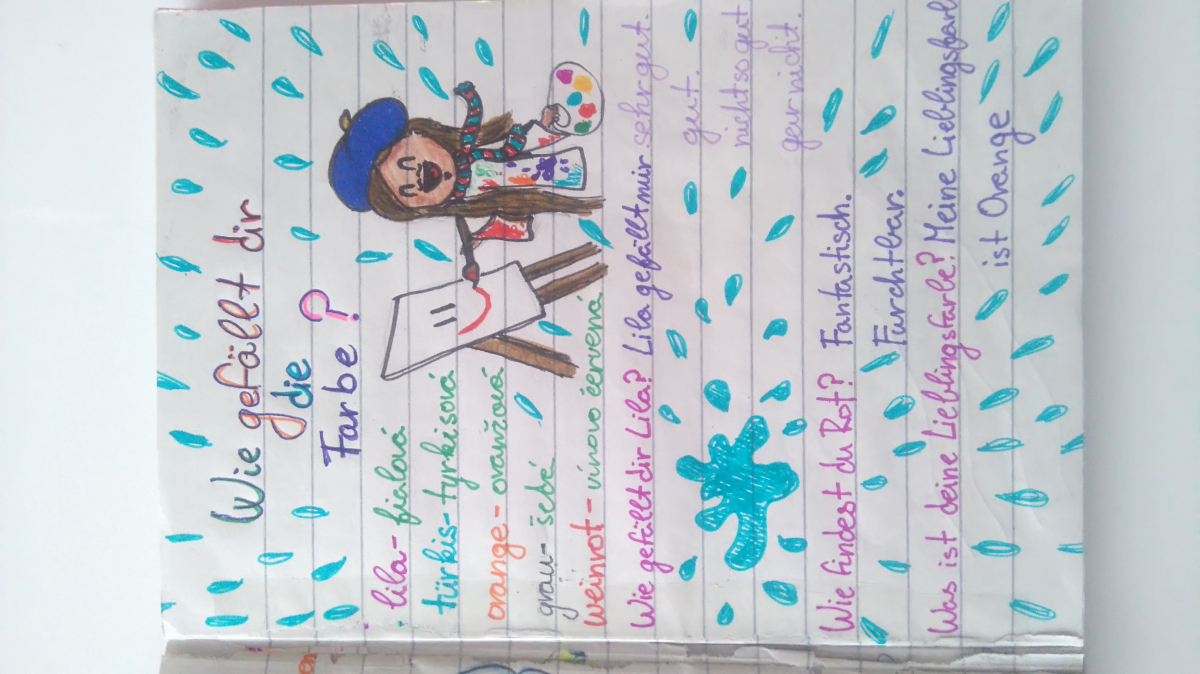 Wie gefällt dir
die
Farbe?
lila - fialová
türkis - tyrkisová
orange - oranžová
grau - šedá
weinrot - vínovo červená
Wie gefällt dir Lila? Lila gefällt mir sehr gut.
gut.
nicht so gut
gar nicht.
Wie findest du Rot? Fantastisch.
Furchtbar.
Was ist deine Lieblingsfarbe? Meine Lieblingsfarb
ist Orange